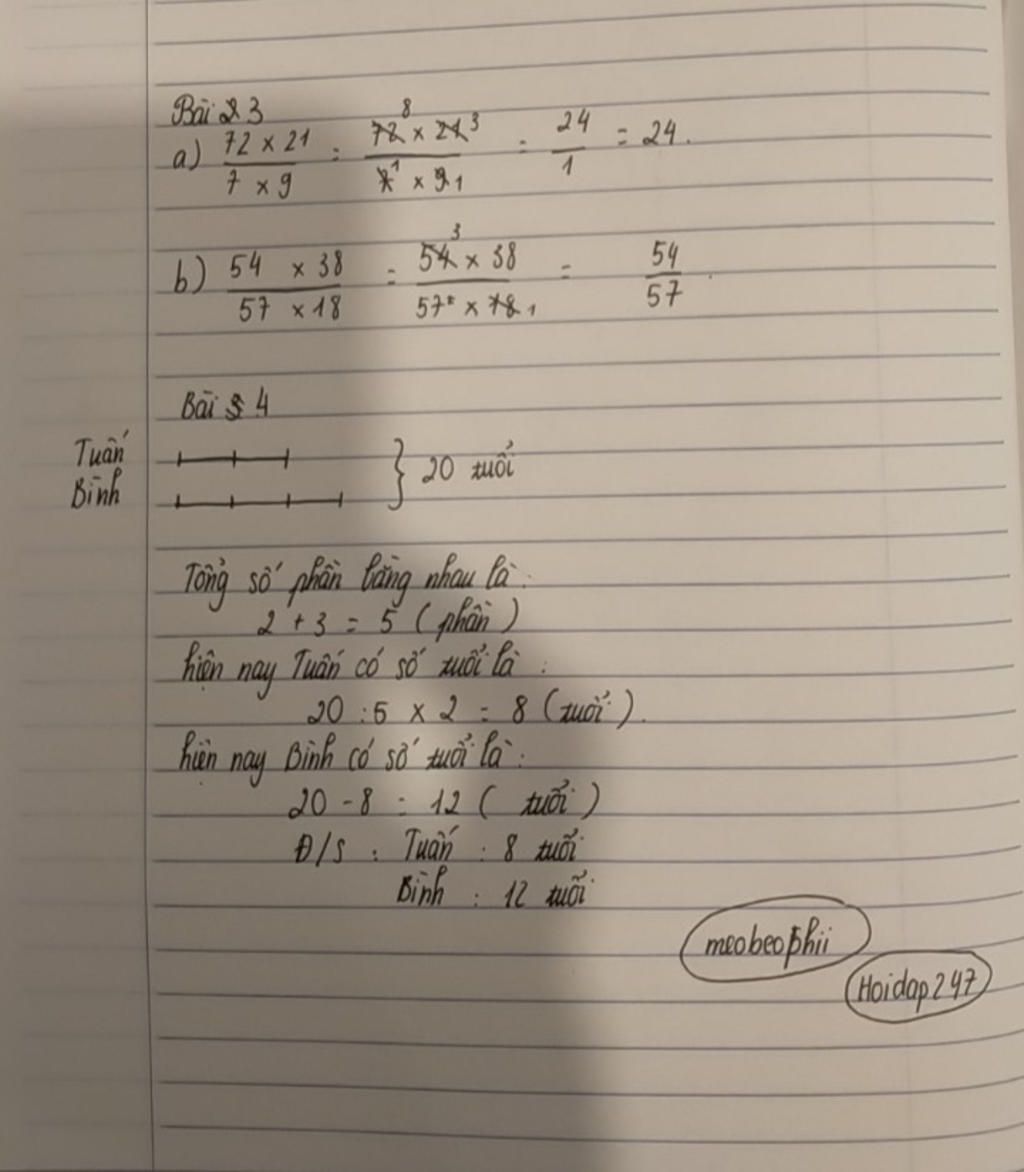 Bài 3
a) 72 × 21 / 7 × 9 = 72 8 × 21 3 / 7 1 × 9 1 = 24 / 1 = 24.
b) 54 × 38 / 57 × 18 = 54 3 × 38 / 57 × 18 1 = 54 / 57.
Bài 4
Tuấn
Bình } 20 tuổi
Tổng số phần bằng nhau là:
2 + 3 = 5 (phần)
hiện nay Tuấn có số tuổi là:
20 : 5 × 2 = 8 (tuổi).
hiện nay Bình có số tuổi là:
20 - 8 = 12 (tuổi)
Đ/S : Tuấn : 8 tuổi
Bình : 12 tuổi
meobeophii
Hoidap247